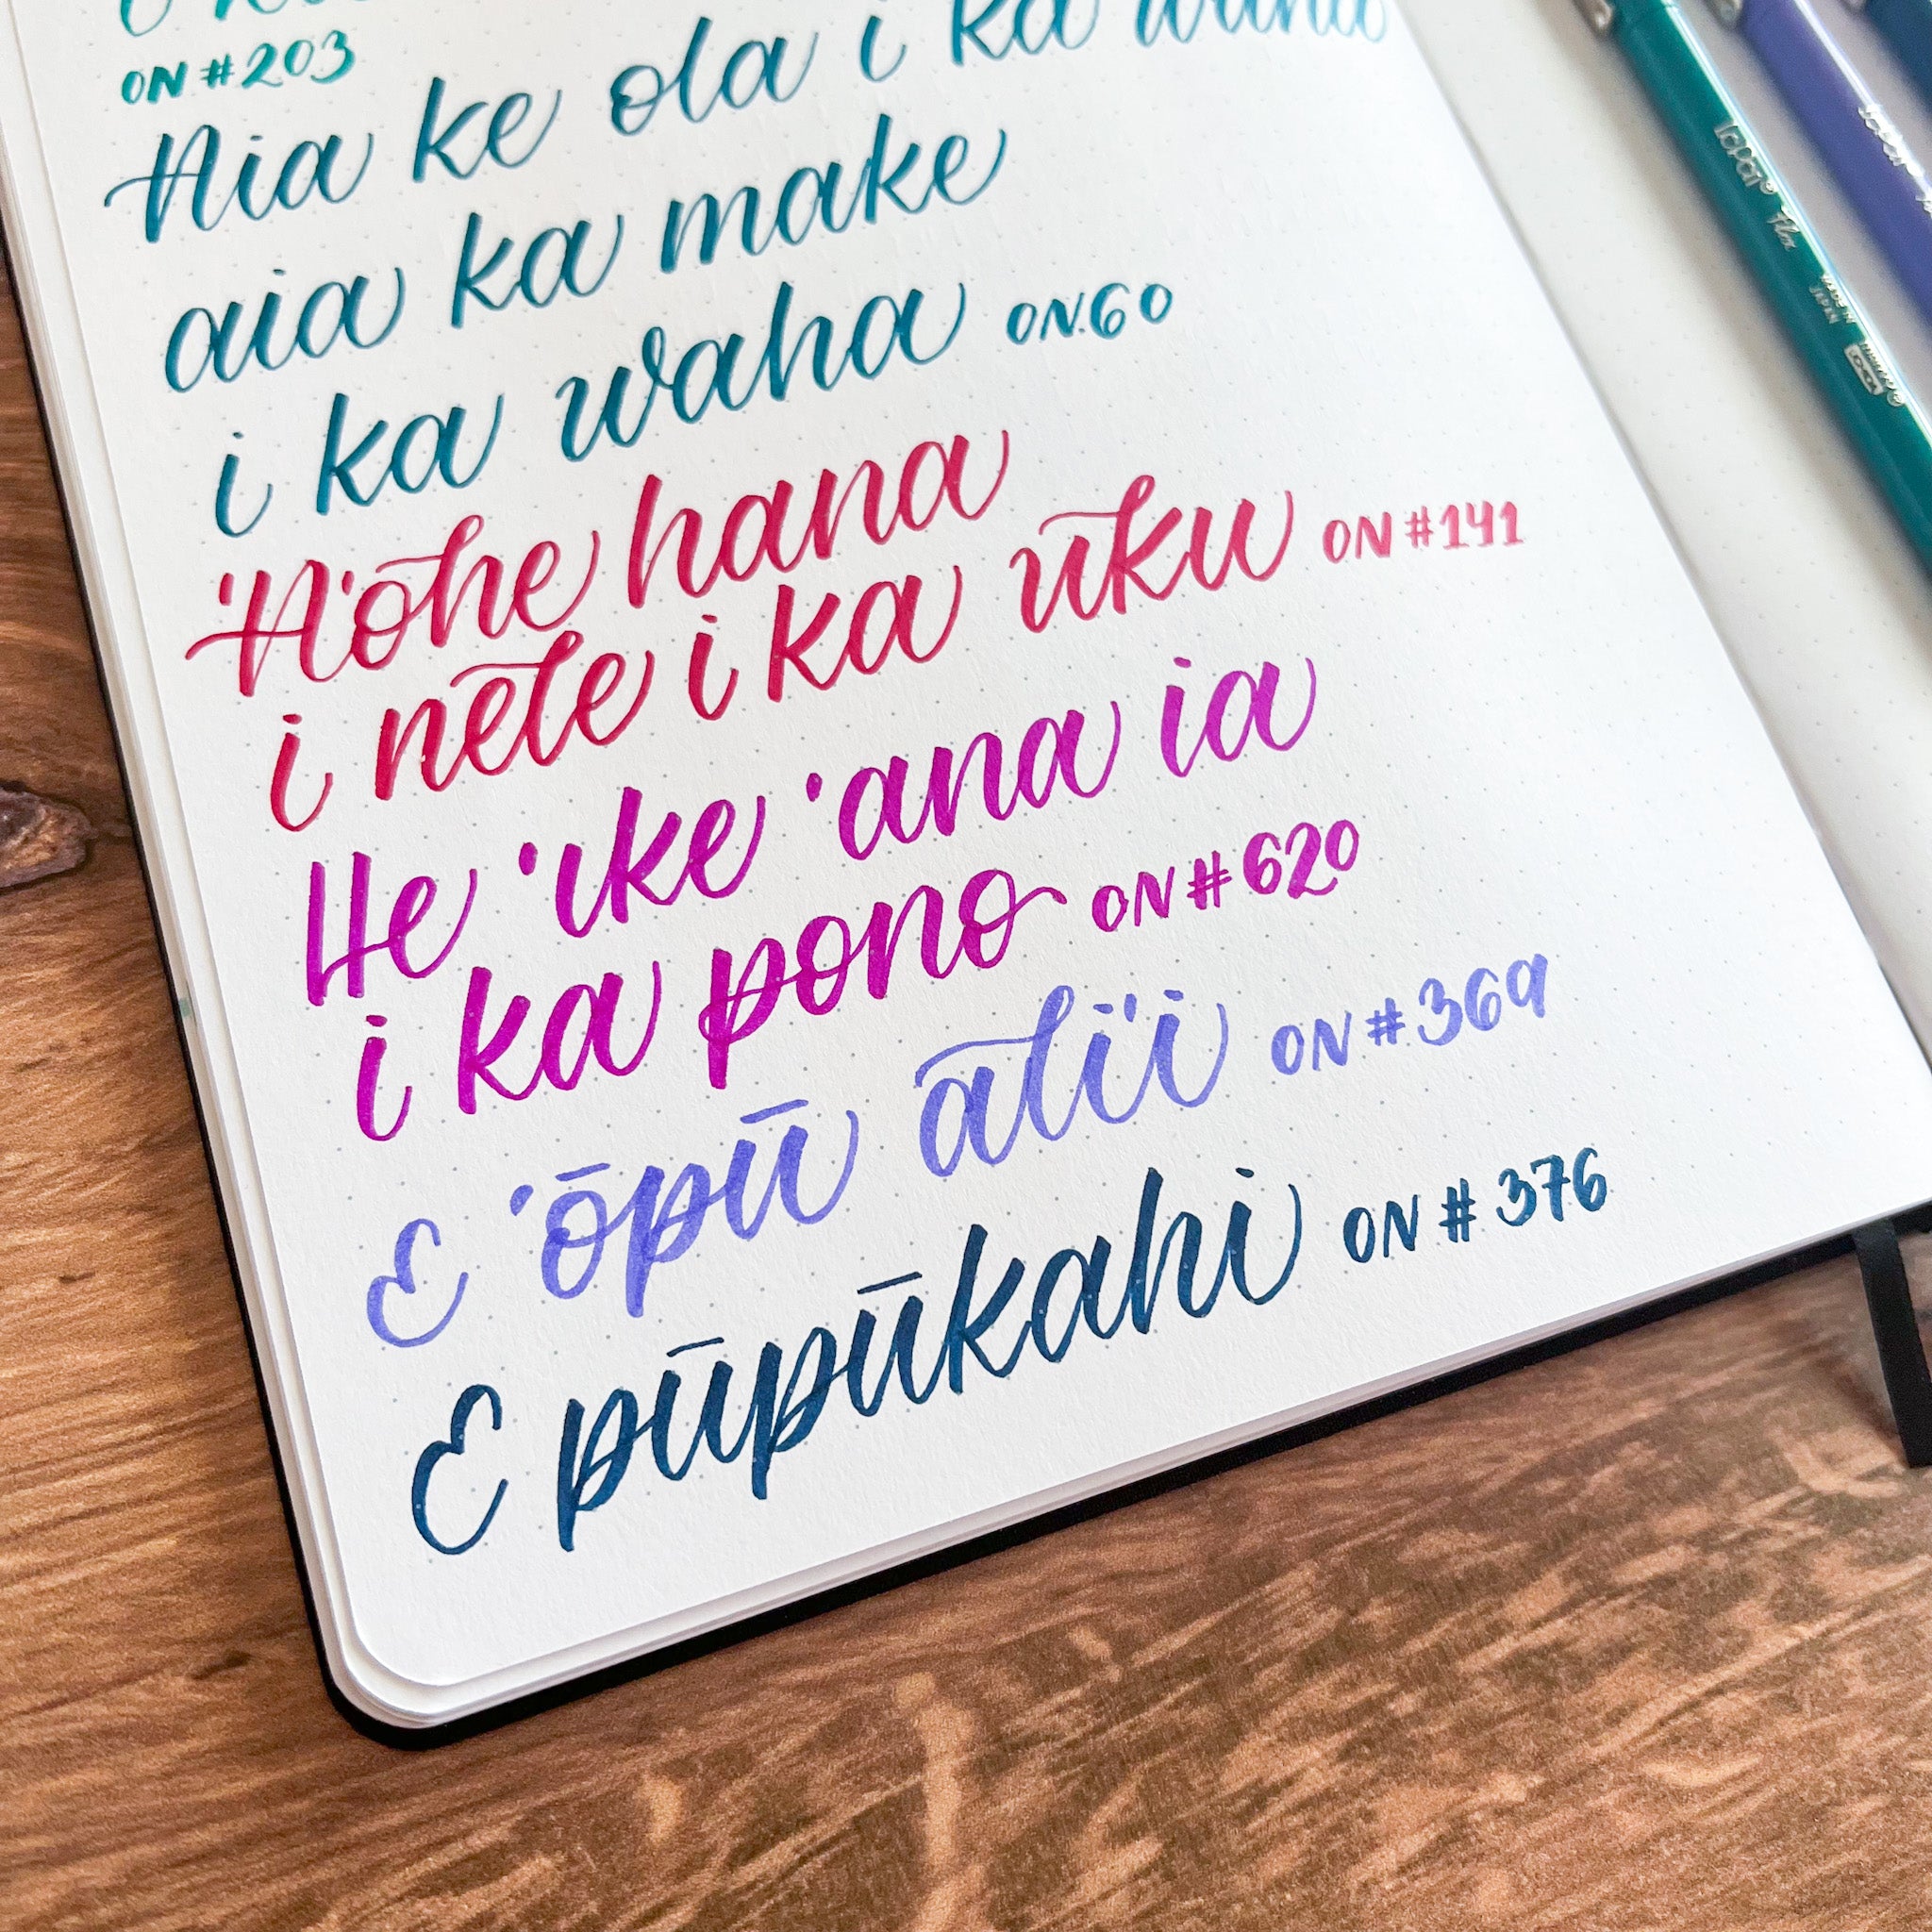 ON #203
Aia ke ola i ka waha
aia ka make
i ka waha ON.60
'A'ohe hana
i nele i ka uku ON #141
He 'ike 'ana ia
i ka pono ON #620
E 'ōpū ali'i ON #369
E pūpūkahi ON #376
MADE IN
JAPAN